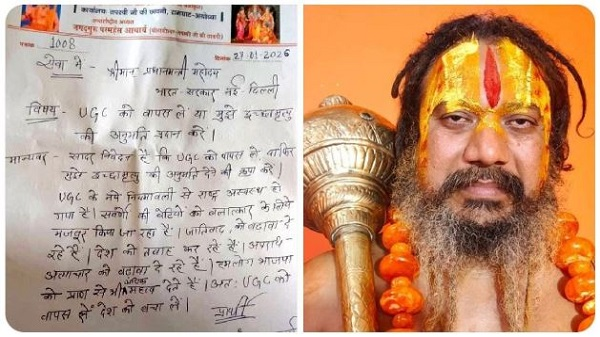 कार्यालय- तपस्वी जी की छावनी, रामघाट-अयोध्या
जगद्गुरु परमहंस आचार्य
पत्रांक 1008
दिनांक 27-01-2026
सेवा में-
श्रीमान् प्रधानमन्त्री महोदय
भारत-सरकार नई दिल्ली
विषय- UGC को वापस लें या मुझे इच्छामृत्यु
की अनुमति प्रदान करें।
मान्यवर- सादर निवेदन है कि UGC को वापस लें, या फिर
इच्छामृत्यु की अनुमति देने की कृपा करें।
UGC के नये नियमावली से राष्ट्र अस्वस्थ हो
गया है। सवर्णों की बेटियों को बलात्कार के लिये
मजबूर किया जा रहा है। जातिवाद को बढ़ावा दे
रहे हैं। देश को तबाह कर रहे हैं। अपराध-
अत्याचार को बढावा दे रहे हैं। हमलोग भाजपा
को प्राण से अधिक महत्व देते हैं। अतः UGC को
वापस लें देश को बचा लें।
प्रार्थी